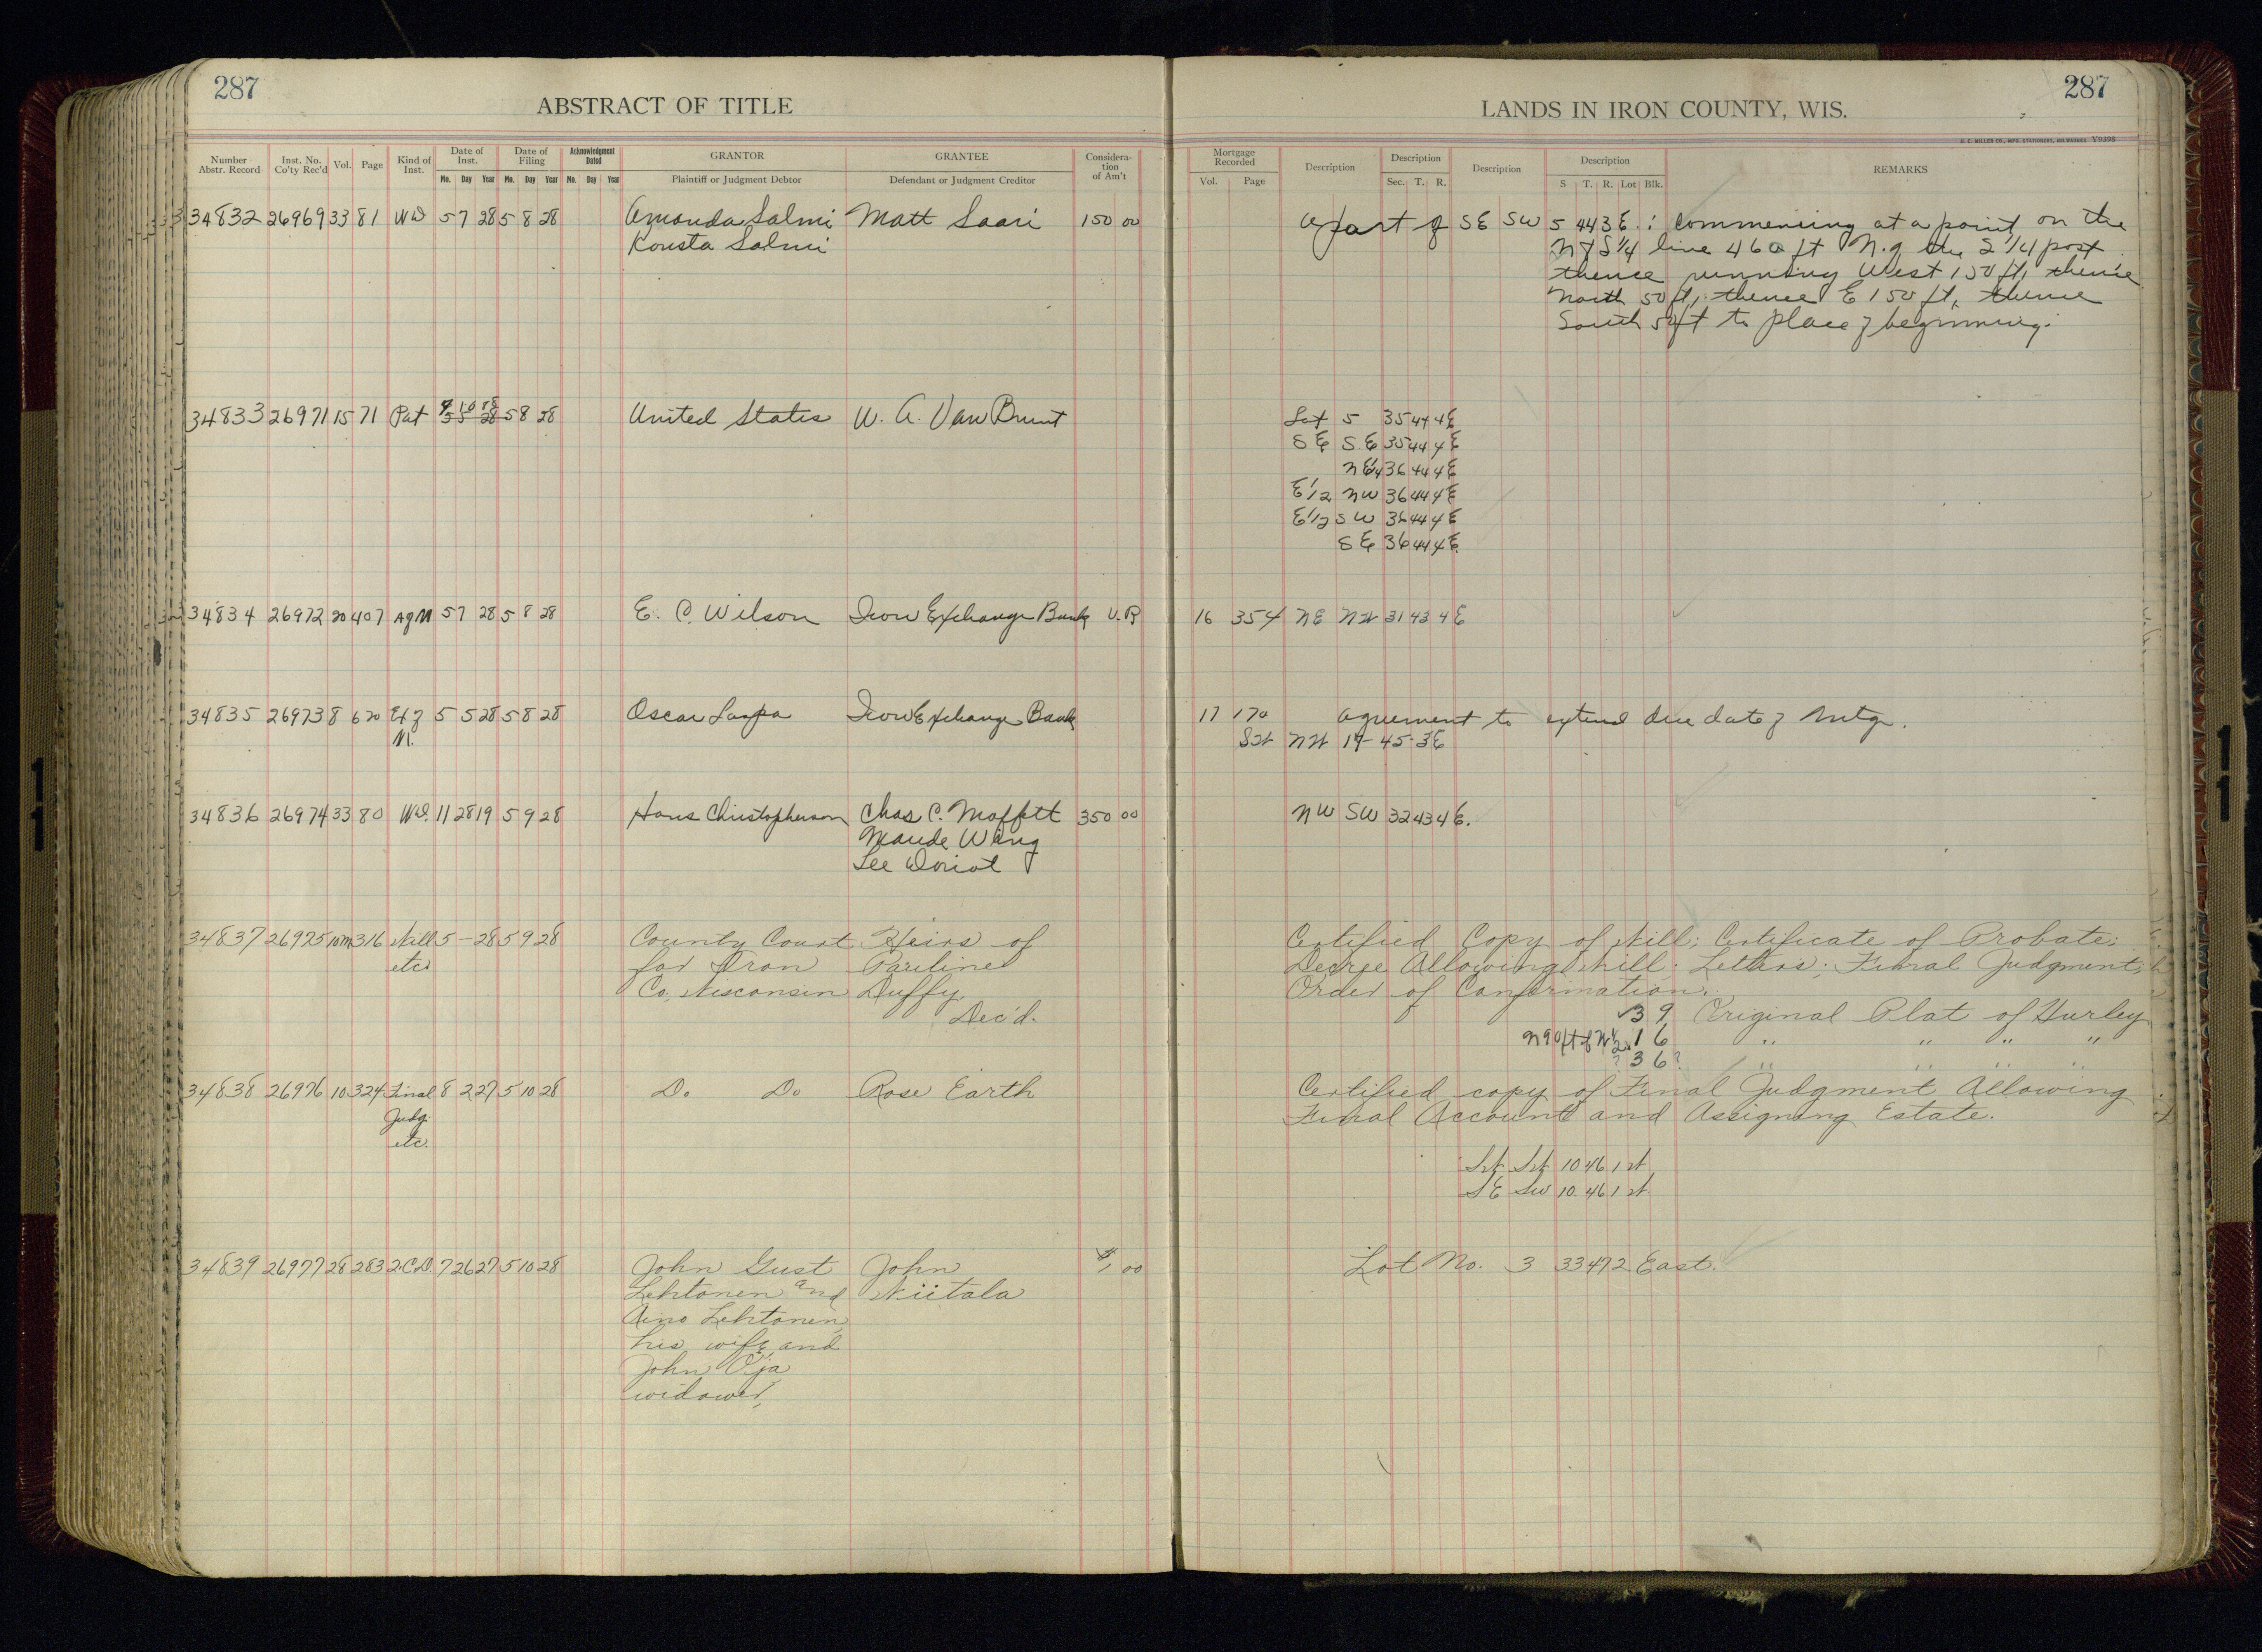 287
ABSTRACT OF TITLE
LANDS IN IRON COUNTY, WIS.
287
H. C. MILLER CO., MFG. STATIONERS, MILWAUKEE V9398
Number Abstr. Record
Inst. No. Co'ty Rec'd
Vol.
Page
Kind of Inst.
Date of Inst.
Mo. Day Year
Date of Filing
Mo. Day Year
Acknowledgment Dated
Mo. Day Year
GRANTOR
Plaintiff or Judgment Debtor
GRANTEE
Defendant or Judgment Creditor
Considera-tion of Am't
Mortgage Recorded
Vol. Page
Description
Description
Sec. T. R.
Description
Description
S T. R. Lot Blk.
REMARKS
34832 26969 33 81 WD 5 7 28 5 8 28 Amanda Salmi Matt Saari 150 00 A part of SE SW 5 44 3E.: Commencing at a point on the
Konsta Salmi N & S 1/4 line 460 ft N. of the S 1/4 post
thence running West 150 ft, thence
North 50 ft, thence E 150 ft, thence
South 50 ft to place of beginning.
34833 26971 15 71 Pat 5 5 28 5 8 28 United States W. A. Van Brunt Lot 5 35 44 4E
SE SE 35 44 4E
NE1/4 36 44 4E
E1/2 NW 36 44 4E
E1/2 SW 36 44 4E
SE 36 44 4E
34834 26972 20 407 AgM 5 7 28 5 8 28 E. C. Wilson Iron Exchange Bank V.R 16 354 NE NW 31 43 4E
34835 26973 8 620 Ex of 5 5 28 5 8 28 Oscar Laspa Iron Exchange Bank 17 170 agreement to extend due date of Mtg.
M. SW NW 14-45-3E
34836 26974 33 80 WD. 11 28 19 5 9 28 Hans Christopherson Chas C. Moffett 350 00 NW SW 32 43 4E.
Maude Wang
Lee Doriot
34837 26975 10m 316 Will 5 – 28 5 9 28 County Court Heirs of Certified Copy of Will; Certificate of Probate;
etc for Iron Pauline Decree Allowing Will; Letters; Final Judgment;
Co., Wisconsin Duffy, Order of Confirmation.
Dec'd. 3 9 Original Plat of Hurley
N90ft of W1/2 1 6 " " " "
? 3 6? " " " "
34838 26976 10 324 Final 8 2 27 5 10 28 Do Do Rose Earth Certified copy of Final Judgment Allowing
Judg. Final Account and Assigning Estate.
etc.
SW SW 10 46 1 W
SE SW 10 46 1 W
34839 26977 28 283 2.C.D. 7 26 27 5 10 28 John Gust John $1 00 Lot No. 3 33 47 2 East.
Lehtonen and Niitala
Aino Lehtonen,
his wife, and
John Oja
widower,